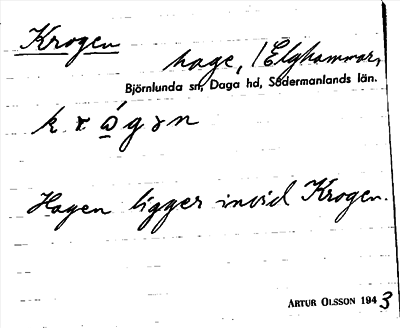 Krogen
hage, /Elghammar,
Björnlunda sn, Daga hd, Södermanlands län.
Hagen ligger invid Krogen.
ARTUR OLSSON 1943